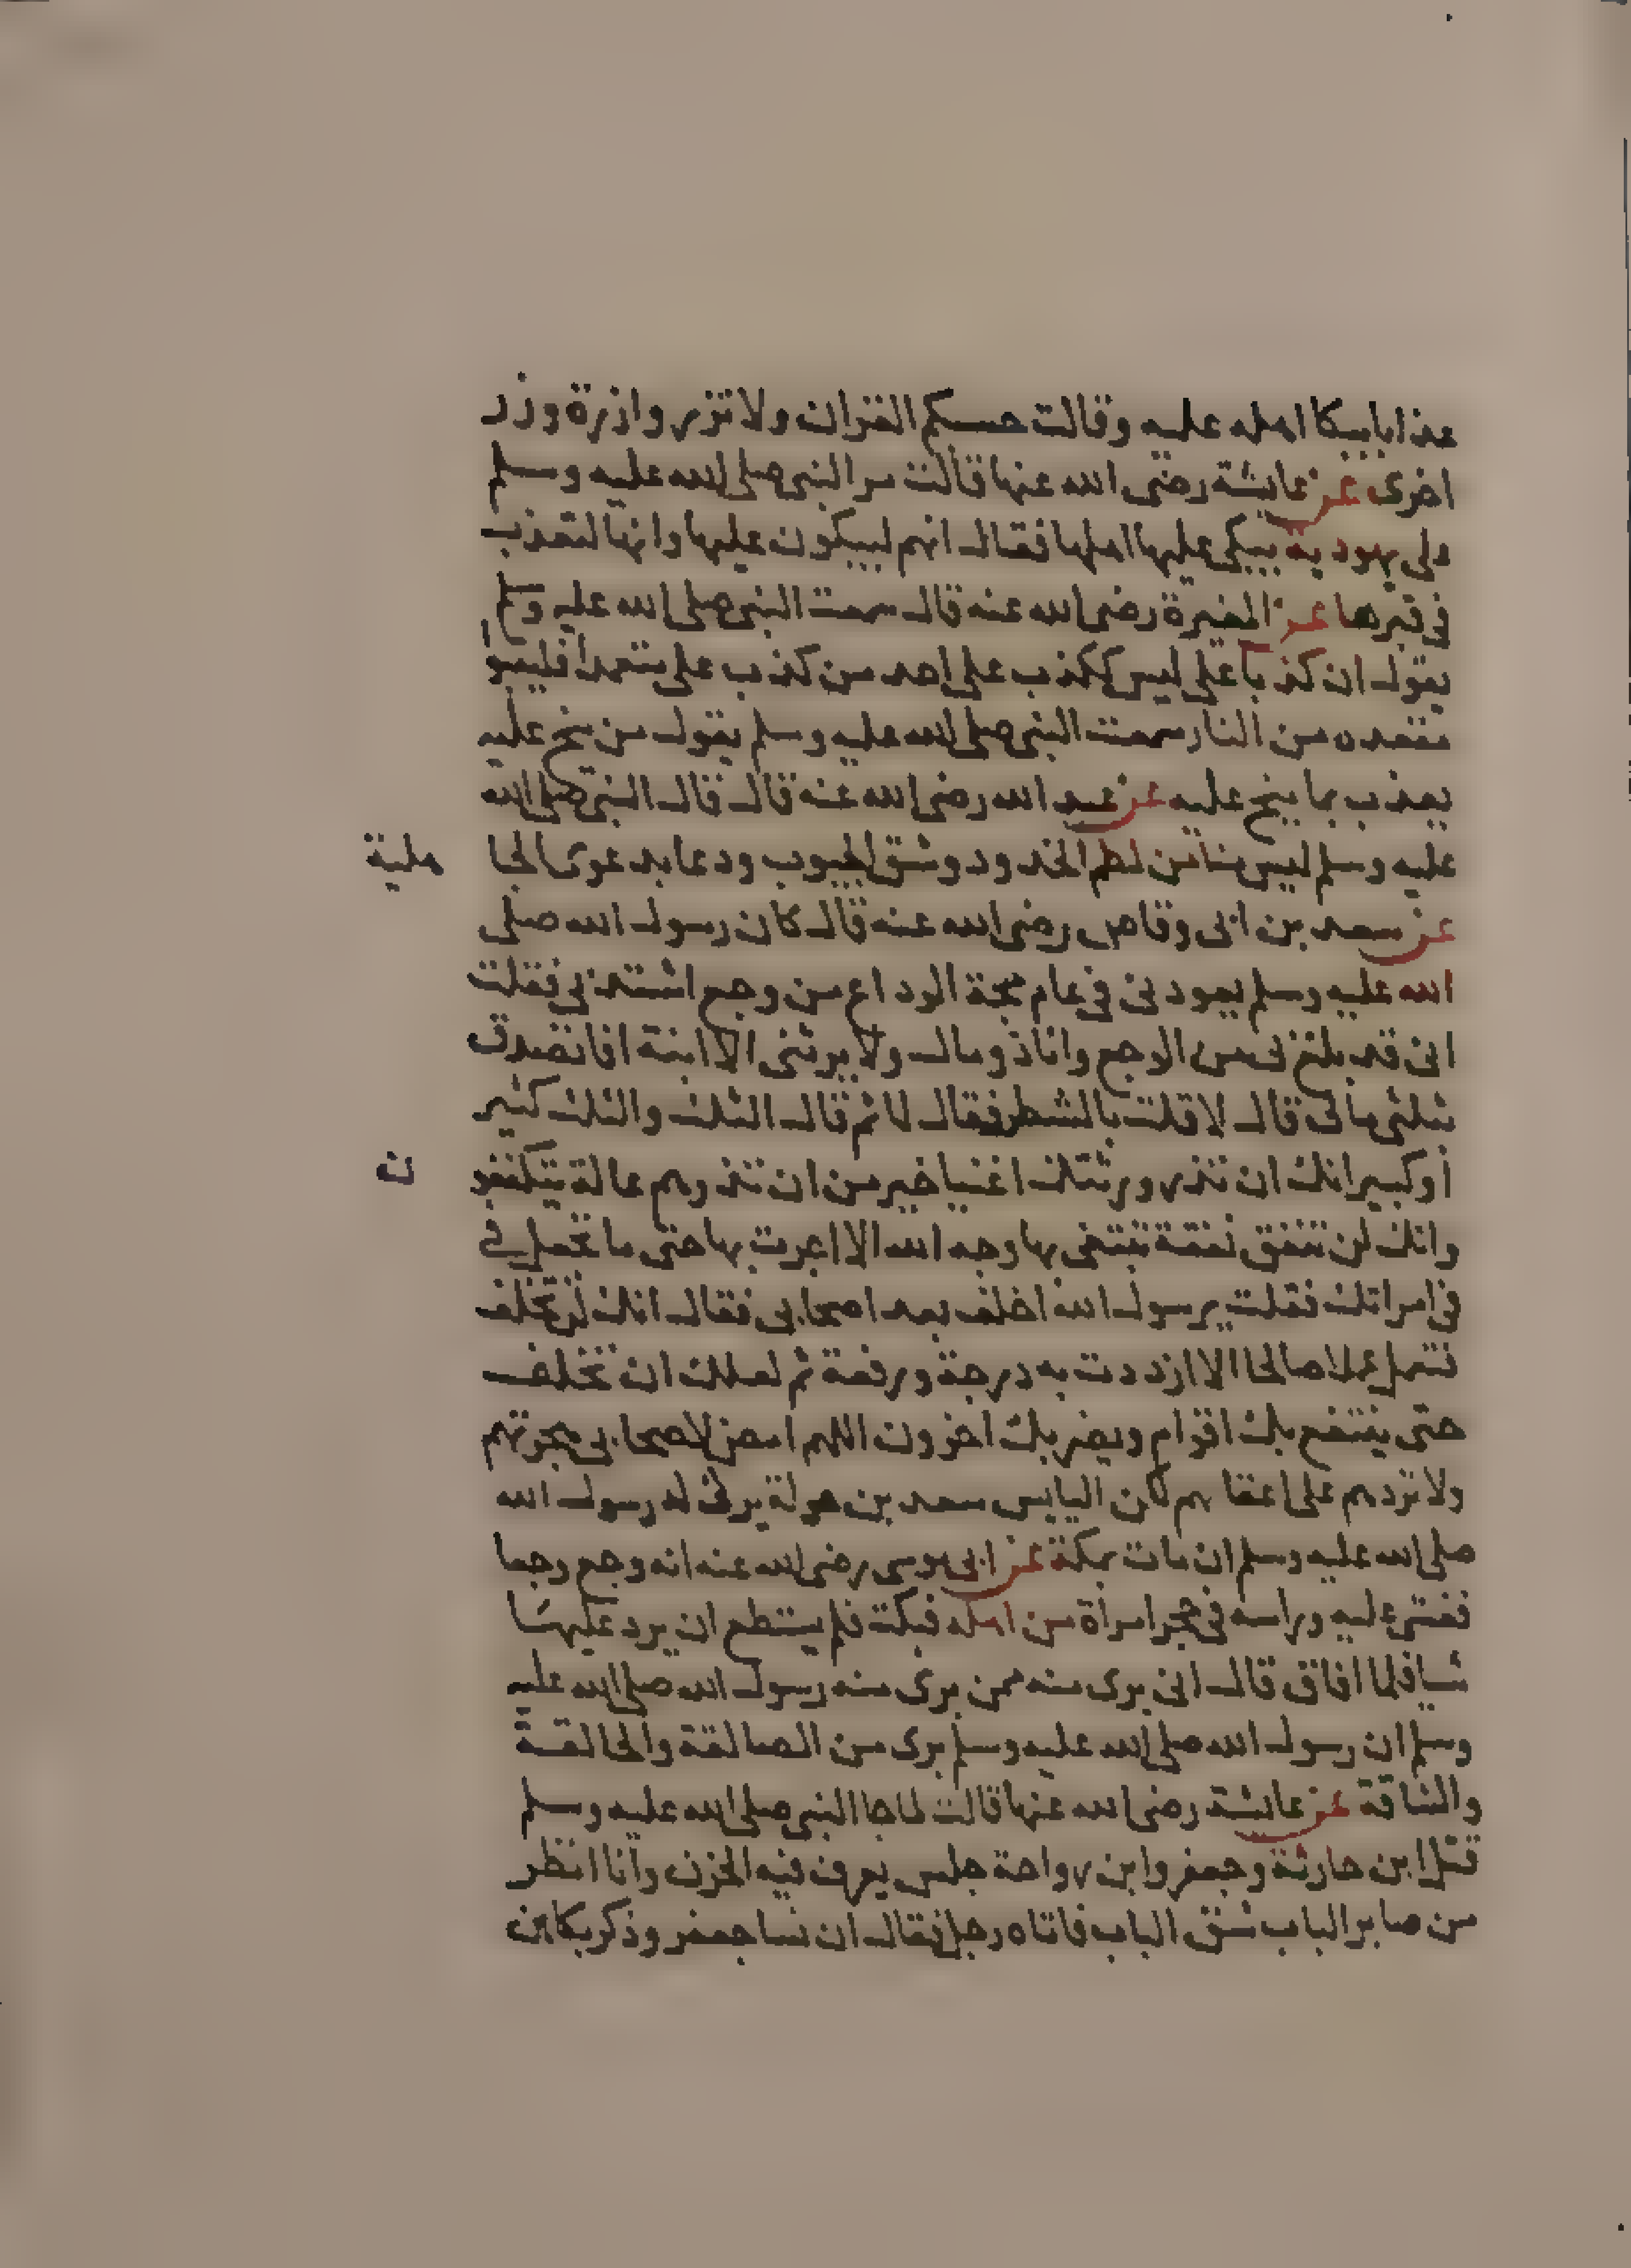 عذابا ببكا اهله عليه وقالت حسبكم القران ولا تزر وازرة وزر
اخرى عن عايشة رضى الله عنها قالت مر النبى صلى الله عليه وسلم
على يهودية يبكى عليها اهلها فقال انهم ليبكون عليها وانها لتعذب
فى قبرها عن المغيرة رضى الله عنه قال سمعت النبى صلى الله عليه وسلم
يقول ان كذبا على ليس ككذب على احد من كذب على متعمدا فليتبو
مقعده من النار سمعت النبى صلى الله عليه وسلم يقول من ينح عليه
يعذب بما ينح عليه عن عبد الله رضى الله عنه قال قال النبى صلى الله
عليه وسلم ليس منا من لطم الخدود وشق الجيوب ودعا بدعوى الجا
هلية
عن سعد بن ابى وقاص رضى الله عنه قال كان رسول الله صلى
الله عليه وسلم يعودنى فى عام حجة الوداع من وجع اشتد بى فقلت
انى قد بلغ بى من الوجع وانا ذو مال ولا يرثنى الا ابنة افاتصدق
بثلثى مالى قال لا قلت بالشطر فقال لا ثم قال الثلث والثلث كثير
او كبير انك ان تذر ورثتك اغنيا خير من ان تذرهم عالة يتكففو
ن
وانك لن تنفق نفقة تبتغى بها وجه الله الا اجرت بها حتى ما تجعل فى
فى امراتك فقلت يرسول الله اخلف بعد اصحابى فقال انك لن تخلف
فتعمل عملا صالحا الا ازددت به درجة ورفعة ثم لعلك ان تخلف
حتى ينتفع بك اقوام ويضر بك اخرون اللهم امض لاصحابى هجرتهم
ولا تردهم على اعقابهم لكن البايس سعد بن خولة يرثى له رسول الله
صلى الله عليه وسلم ان مات بمكة عن ابى موسى رضى الله عنه انه وجع وجعا
فغشى عليه وراسه فى حجر امراة من اهله فبكت فلم يستطع ان يرد عليها
شيا فلما افاق قال انى برى منه ممن برى منه رسول الله صلى الله عليه
وسلم ان رسول الله صلى الله عليه وسلم برى من الصالقة والحالقة
والشاقة عن عايشة رضى الله عنها قالت لما جا النبى صلى الله عليه وسلم
قتل ابن حارثة وجعفر وابن رواحة جلس يعرف فيه الحزن وانا انظر
من صاير الباب شق الباب فاتاه رجل فقال ان نسا جعفر وذكر بكاهن